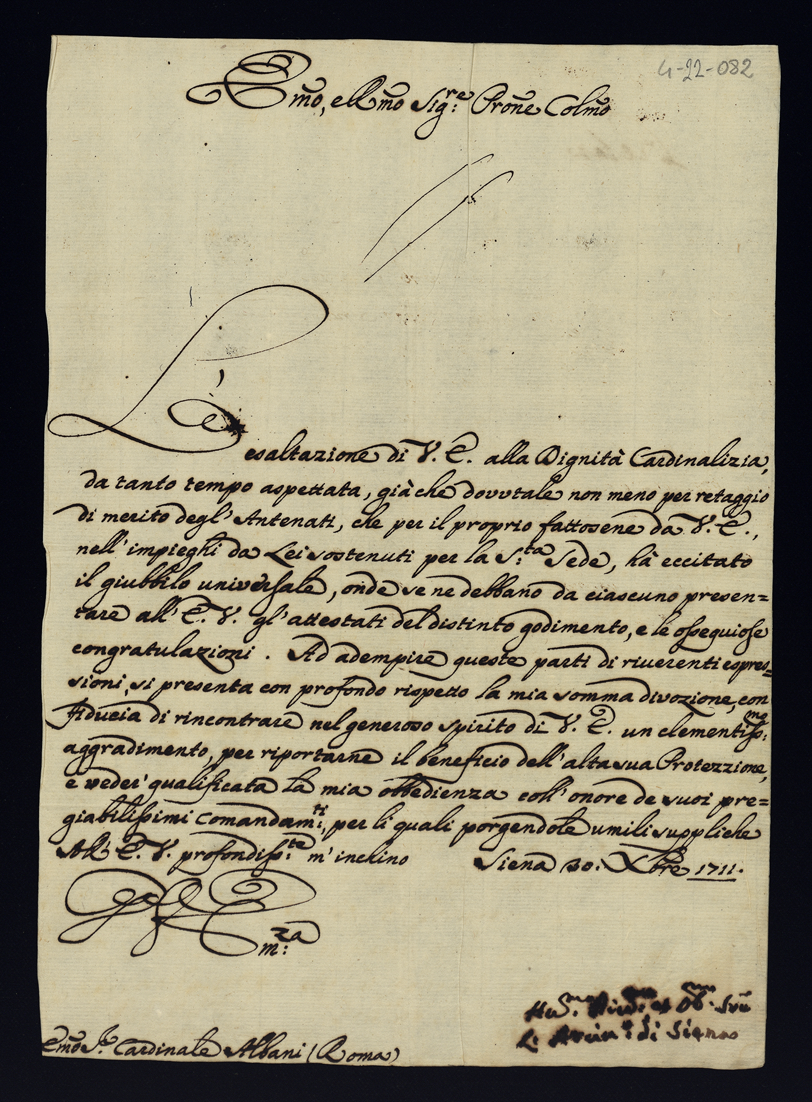 4-22-082
Emo, e Rmo Sig.re Prone Colmo
L'è
esaltazione di V. E. alla Dignità Cardinalizia,
da tanto tempo aspettata, già che dovutale non meno per retaggio
di merito degl'Antenati, che per il proprio fattosene da V. E.,
nell'impieghi da Lei sostenuti per la S.ta Sede, hà eccitato
il giubbilo universale, onde se ne debbano da ciascuno presen=
tare all'E. V. gl'attestati del distinto godimento, e le ossequiose
congratulazioni. Ad adempire queste parti di riverenti espres=
sioni, si presenta con profondo rispetto la mia somma divozione, con
fiducia di rincontrare nel generoso spirito di V. E. un clementiss:mo
aggradimento, per riportarne il beneficio dell'alta sua Protezzione,
e veder' qualificata la mia obbedienza coll'onore de suoi pre=
giabilissimi comandam:ti, per li quali porgendole umili suppliche
All'E. V. profondiss:te m'inchino Siena 30: Xbre 1711.
m:za
Emo Sr. Cardinale Albani (Roma)
di Siena